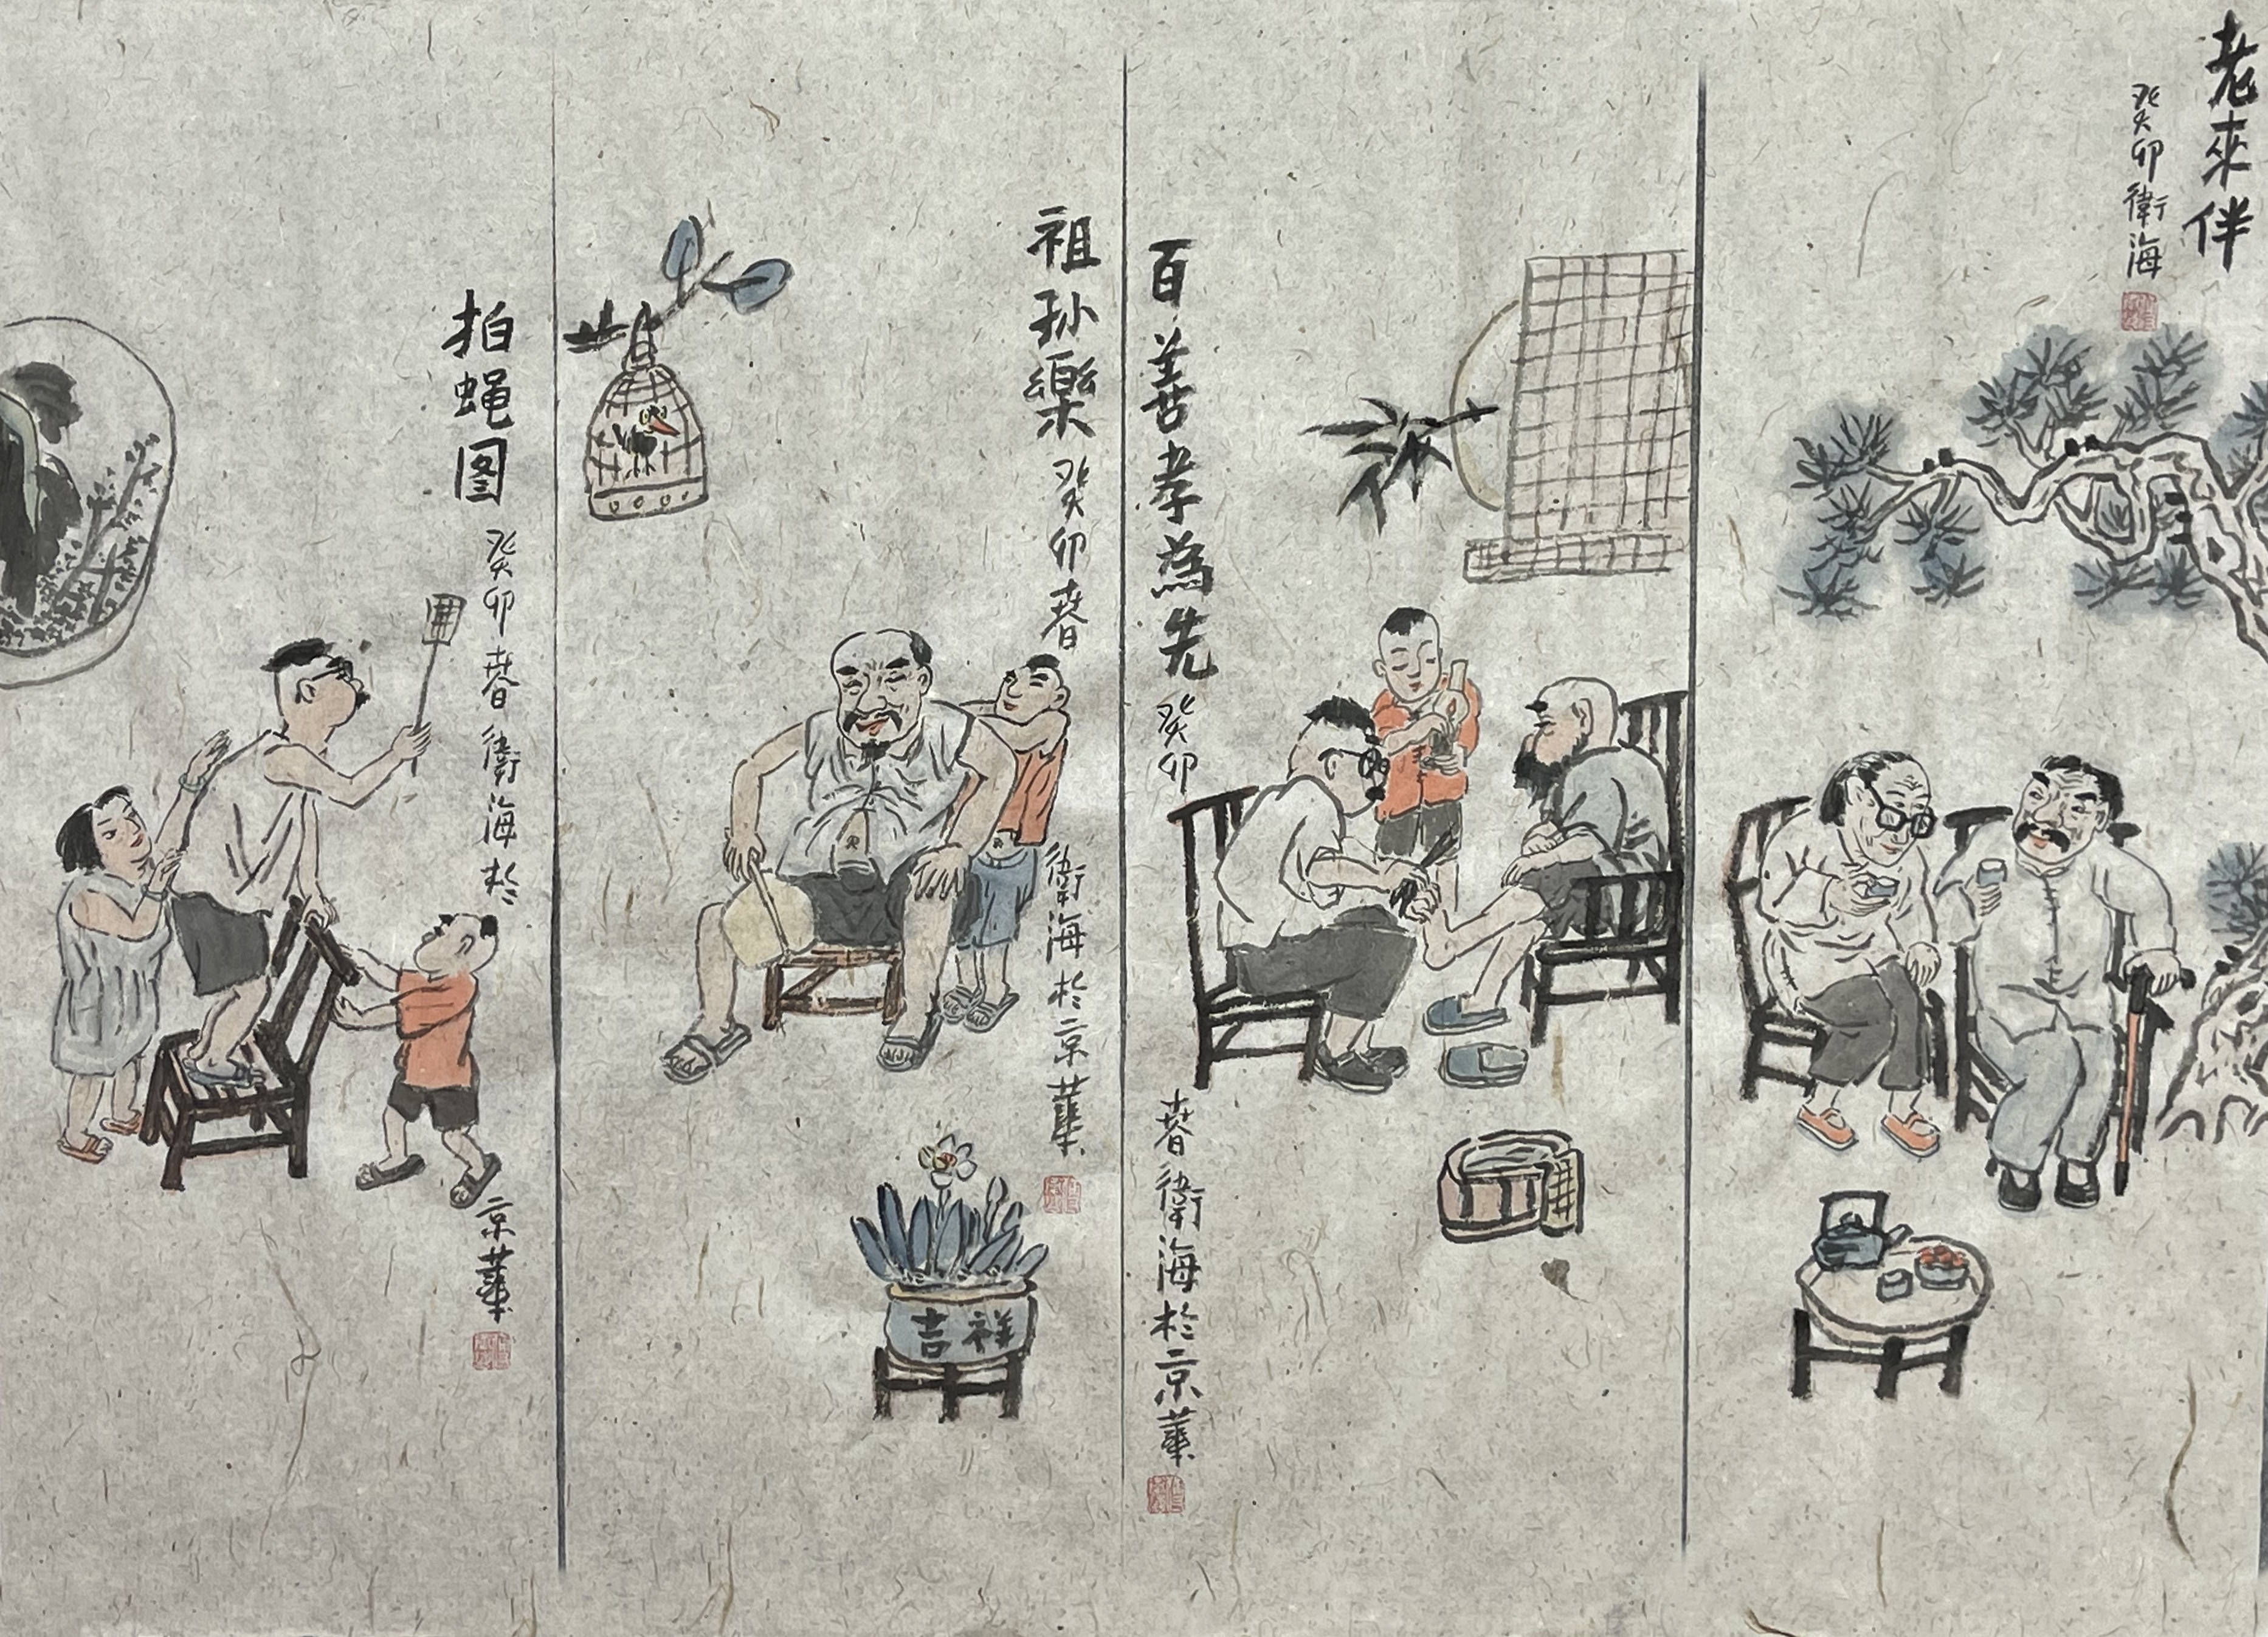 老來伴
癸卯衛海
百善孝為先
癸卯春衛海於京華
祖孙樂
癸卯春衛海於京華
吉祥
拍蝇图
癸卯春衛海於京華